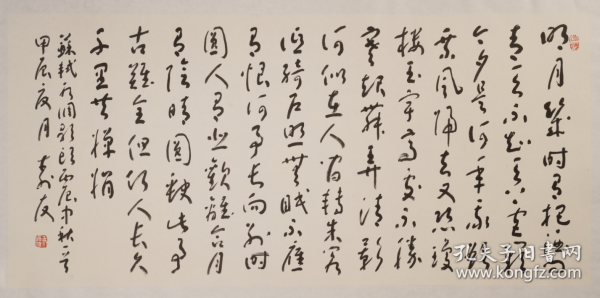 明月幾時有把酒問
青天不知天上宮闕
今夕是何年我欲
乘風歸去又恐瓊
樓玉宇高處不勝
寒起舞弄清影
何似在人間轉朱閣
低綺戶照無眠不應
有恨何事長向別時
圓人有悲歡離合月
有陰晴圓缺此事
古難全但願人長久
千里共嬋娟
蘇軾水調歌頭丙辰中秋
甲辰夏月 友
孔夫子旧书网
www.kongfz.com